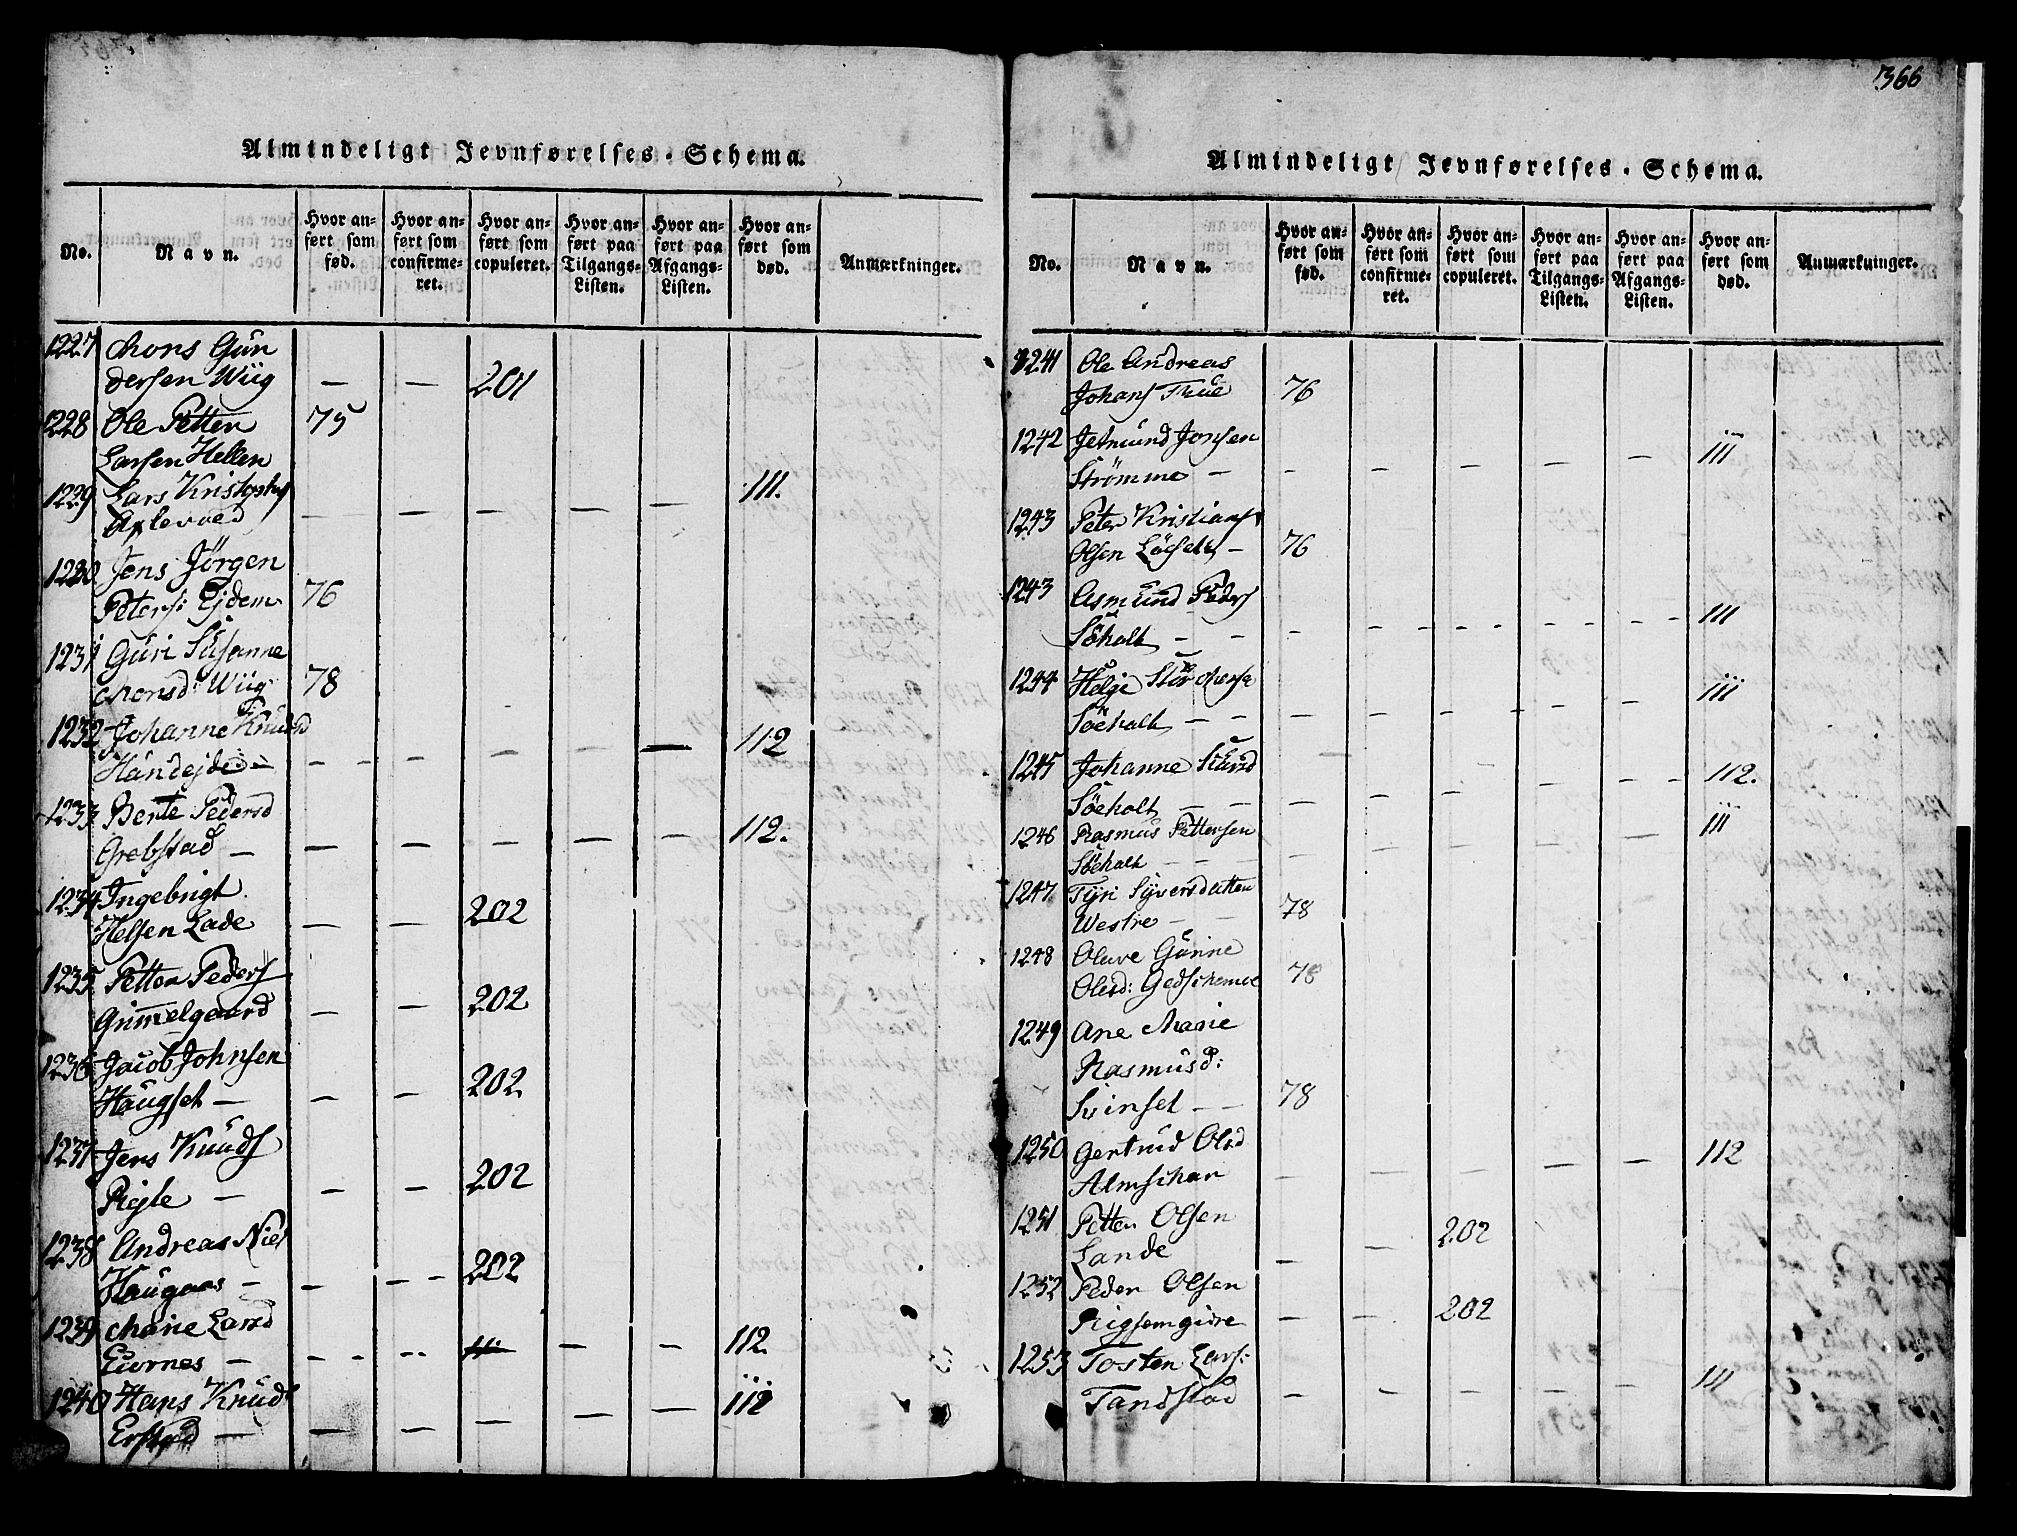 366
Almindeligt Jevnførelses-Schema.
No.
Navn.
Hvor anført som fød.
Hvor anført som confirmeret.
Hvor anført som copuleret.
Hvor anført paa Tilgangs-Listen.
Hvor anført paa Afgangs-Listen.
Hvor anført som død.
Anmærkninger.
1227 Mons Gun
dersen Wiig — — 201
1228 Ole Petter 75
Larsen Hellen
1229 Lars Kristophs
— — — — — 111.
1230 Jens Jørgen
Peters: Ejdem 76
1231 Guri Susanne
Monsd: Wiig 78
1232 Johanne Knudsd
— — — — — 112
1233 Berte Pedersd
Grebstad — — — — — — 112.
1234 Ingebrigt
Helsen Lade — — 202
1235 Petter Peders
Gimmelgaard — — 202
1236 Jacob Johnsen
Haugset — — — 202
1237 Jens Knuds
Rejte — — — 202
1238 Andreas Niels
Haugaas — — — 202
1239 Marie Larsd
Eurnes — — — — — 112.
1240 Hans Knuds
Erstad — — — — — — 112
Almindeligt Jevnførelses-Schema.
No.
Navn.
Hvor anført som fød.
Hvor anført som confirmeret.
Hvor anført som copuleret.
Hvor anført paa Tilgangs-Listen.
Hvor anført paa Afgangs-Listen.
Hvor anført som død.
Anmærkninger.
1241 Ole Andreas
Johans True 76
1242 Jetmund Jonsen
Strömme — — — — — — 111
1243 Peter Kristians
Olsen Löeseth — 76
1243 Asmund Peders
Söholt — — — — — — — 111
1244 Helge
Söeholt — — — — — — — 111
1245 Johanne
Söeholt — — — — — — — 112.
1246 Rasmus Pettersen
Söeholt — — — — — — — 111
1247 Tyri Syversdatter
Westre — — 78
1248 Olave Gunne
Olesd: 78
1249 Ane Marie
Rasmusd:
Svinset — — 78
1250 Gertrud Olsd
— — — — — 112
1251 Petter Olsen
Lande — — 202
1252 Peder Olsen
— — 202
1253 Tosten Lars:
Tandstad — — — — — 111